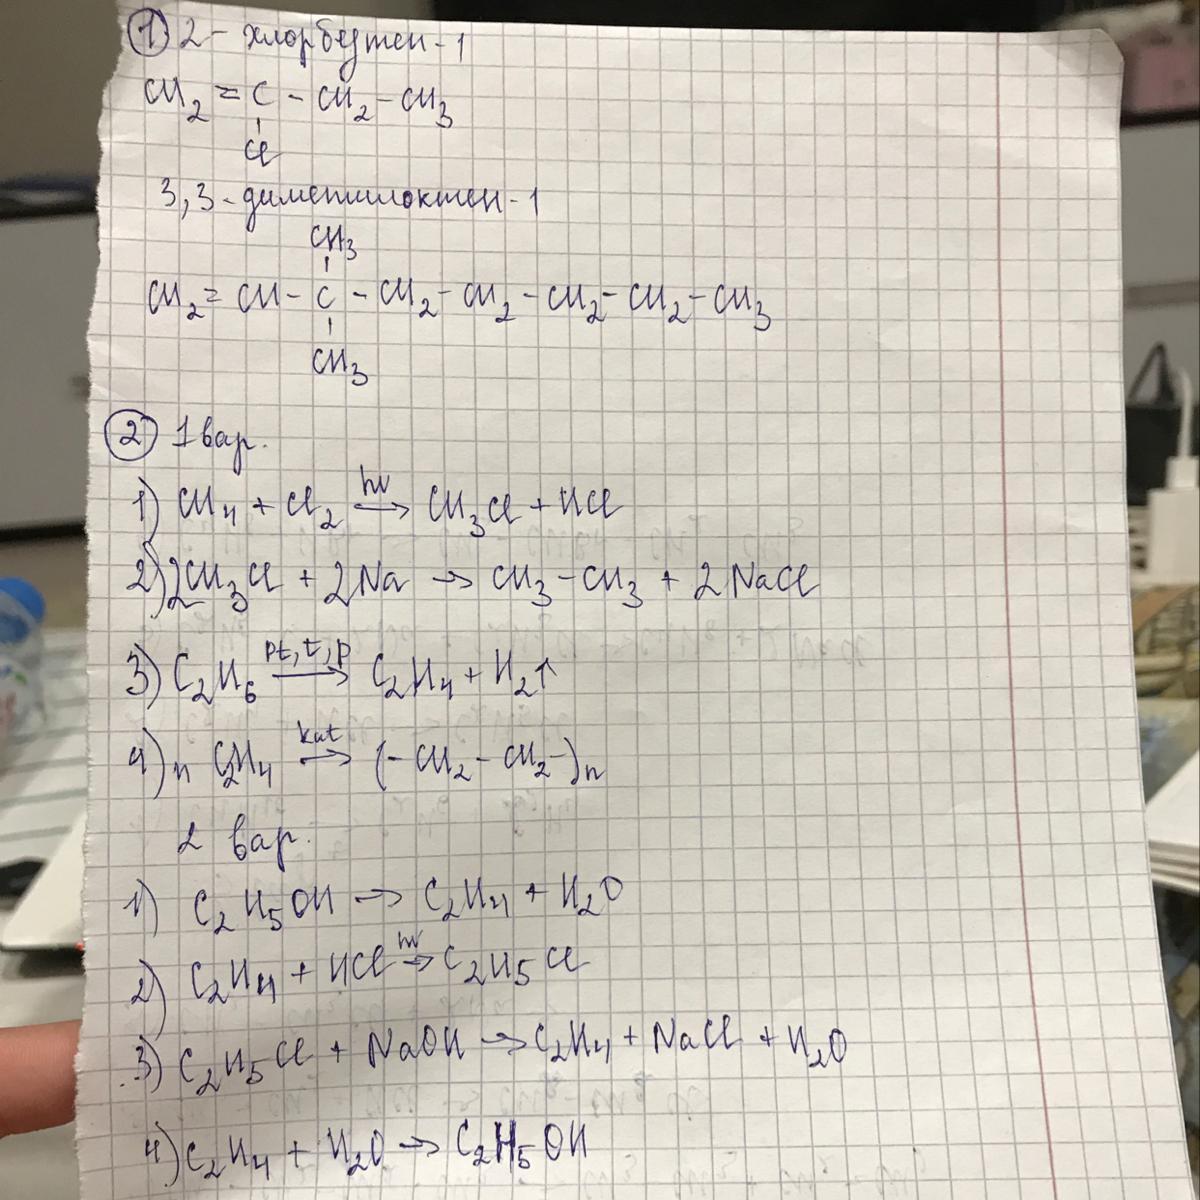 ① 2-хлорбутен-1
CH₂ = C - CH₂ - CH₃
Cl
3,3-диметилоктен-1
CH₃
CH₂ = CH - C - CH₂ - CH₂ - CH₂ - CH₂ - CH₃
CH₃
② 1 вар.
1) CH₄ + Cl₂ hν→ CH₃Cl + HCl
2) 2CH₃Cl + 2Na → CH₃ - CH₃ + 2NaCl
3) C₂H₆ pt, t, p→ C₂H₄ + H₂↑
4) n C₂H₄ kat→ (- CH₂ - CH₂ -)n
2 вар.
1) C₂H₅OH → C₂H₄ + H₂O
2) C₂H₄ + HCl hν→ C₂H₅Cl
3) C₂H₅Cl + NaOH → C₂H₄ + NaCl + H₂O
4) C₂H₄ + H₂O → C₂H₅OH